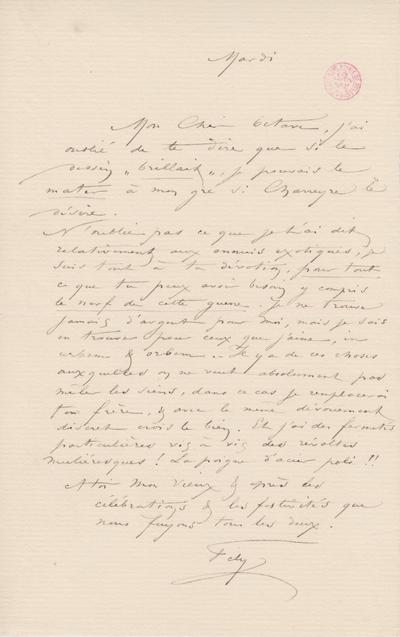 Mardi
Mon Cher Octave, j'ai
oublié de te dire que si le
dessin „brillait", je pouvais le
mater à mon gré si Charreyre le
désire.
N'oublie pas ce que je t'ai dit
relativement aux ennuis exotiques, je
suis tout à ta dévotion, pour tout
ce que tu peux avoir besoin y compris
le nerf de cette guerre. Je ne trouve
jamais d'argent pour moi, mais je sais
en trouver pour ceux que j'aime, in
urbem & orbem. - Il y a de ces choses
auxquelles on ne veut absolument pas
mêler les siens, dans ce cas je remplacerai
ton frère, & avec le même dévouement
discret crois le bien. Et j'ai des fermetés
particulières vis à vis des révoltes
moliéresques ! La poigne d'acier poli !!
A toi mon vieux & après les
célébrations & les festivités que
nous fuyons tous les deux.
Fély